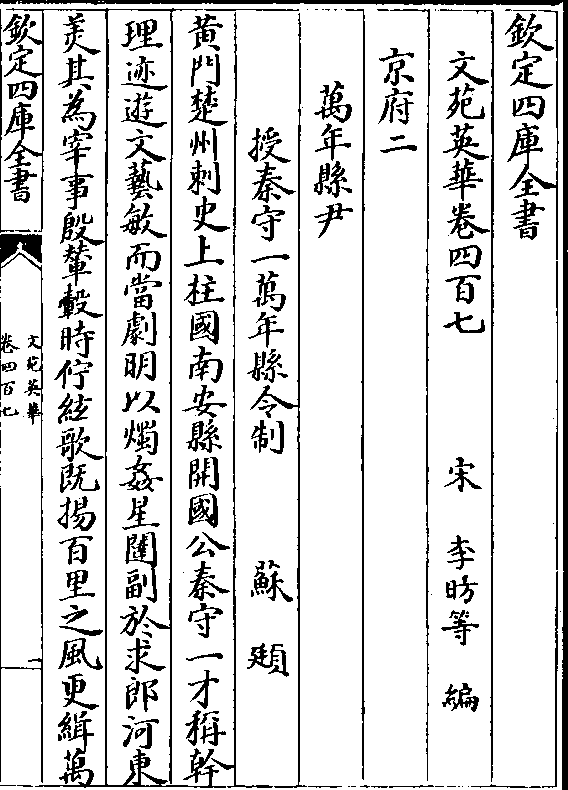 欽定四庫全書
文苑英華卷四百七　宋　李昉等　編
京府二
萬年縣尹
授秦守一萬年縣令制　蘇頲
黃門楚州刺史上柱國南安縣開國公秦守一才稱幹
理迹遊文藝敏而當劇明以燭姦星闈副於求郎河東
羙其為宰事殷輦轂時佇絃歌既揚百里之風更緝萬
欽定四庫全書
文苑英華
卷四百七
一